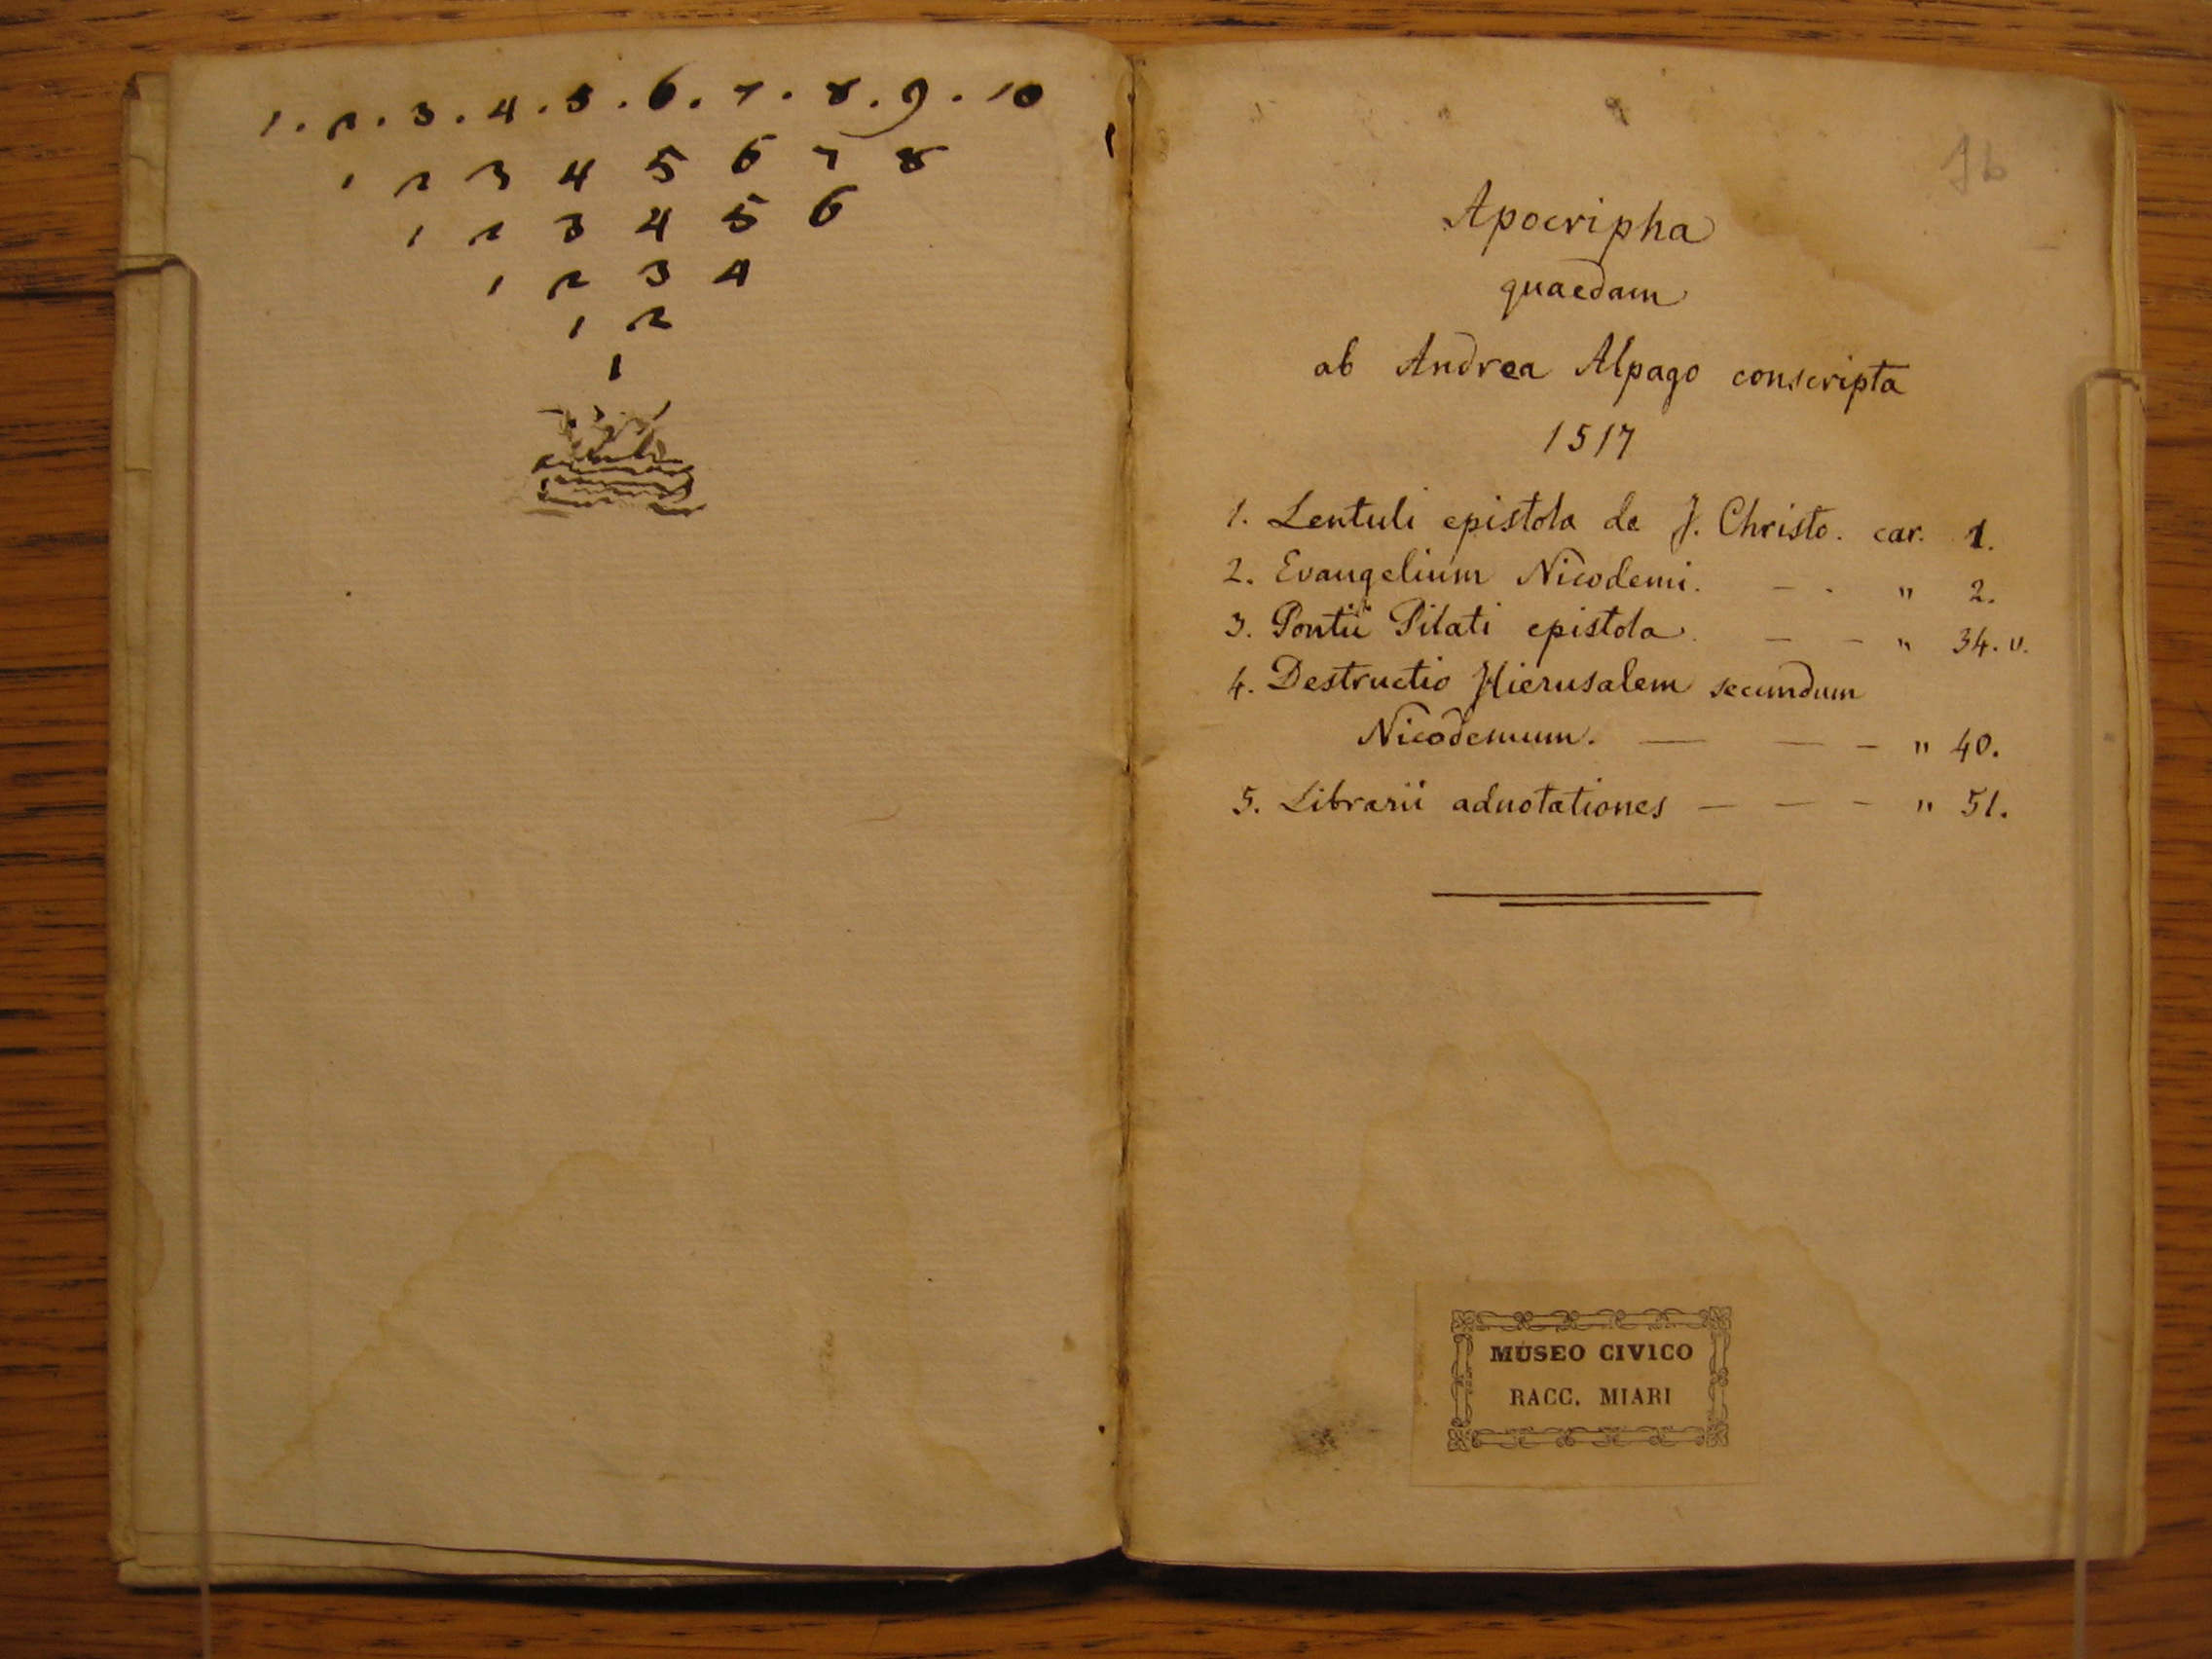 1 . 2 . 3 . 4 . 5 . 6 . 7 . 8 . 9 . 10
1 2 3 4 5 6 7 8
1 2 3 4 5 6
1 2 3 4
1 2
1
Apocripha
quaedam
ab Andrea Alpago conscripta
1517
1. Lentuli epistola de J. Christo. car. 1.
2. Evangelium Nicodemi. - . " 2.
3. Pontii Pilati epistola. - - " 34. v.
4. Destructio Hierusalem secundum
Nicodemum. — — - " 40.
5. Librarii adnotationes — — - " 51.
MUSEO CIVICO
RACC. MIARI